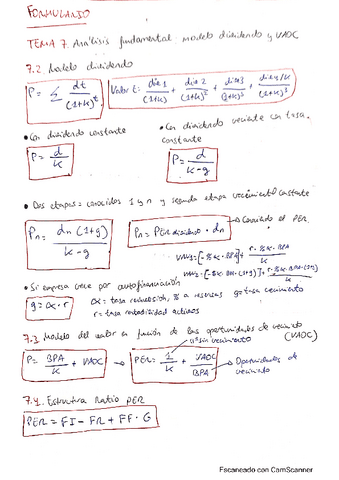 FORMULARIO
TEMA 7. Análisis fundamental: modelo dividendo y VAOC
7.2. Modelo dividendo
P = Σ dt / (1+k)^t   Valor t: div 1 / (1+k) + div 2 / (1+k)² + div 3 / (1+k)³ + div 4/k / (1+k)³
• Con dividendo constante
P = d / k
• Con dividendo creciente con tasa constante
P = d / k - g
• Dos etapas = conocidos 1 y n y segunda etapa crecimiento constante
Pn = dn (1+g) / k - g
Pn = PER dividendo · dn → Conociendo el PER.
• Si empresa crece por autofinanciación
g = α · r
α = tasa retención, % a reservas
g = tasa crecimiento
r = tasa rentabilidad activos
7.3 Modelo del valor en función de las oportunidades de crecimiento (VAOC)
P = BPA / k + VAOC → PER = 1 / k + VAOC / BPA
sin crecimiento
Oportunidades de crecimiento
7.4. Estructura Ratio PER
PER = FI - FR + FF · G
Escaneado con CamScanner